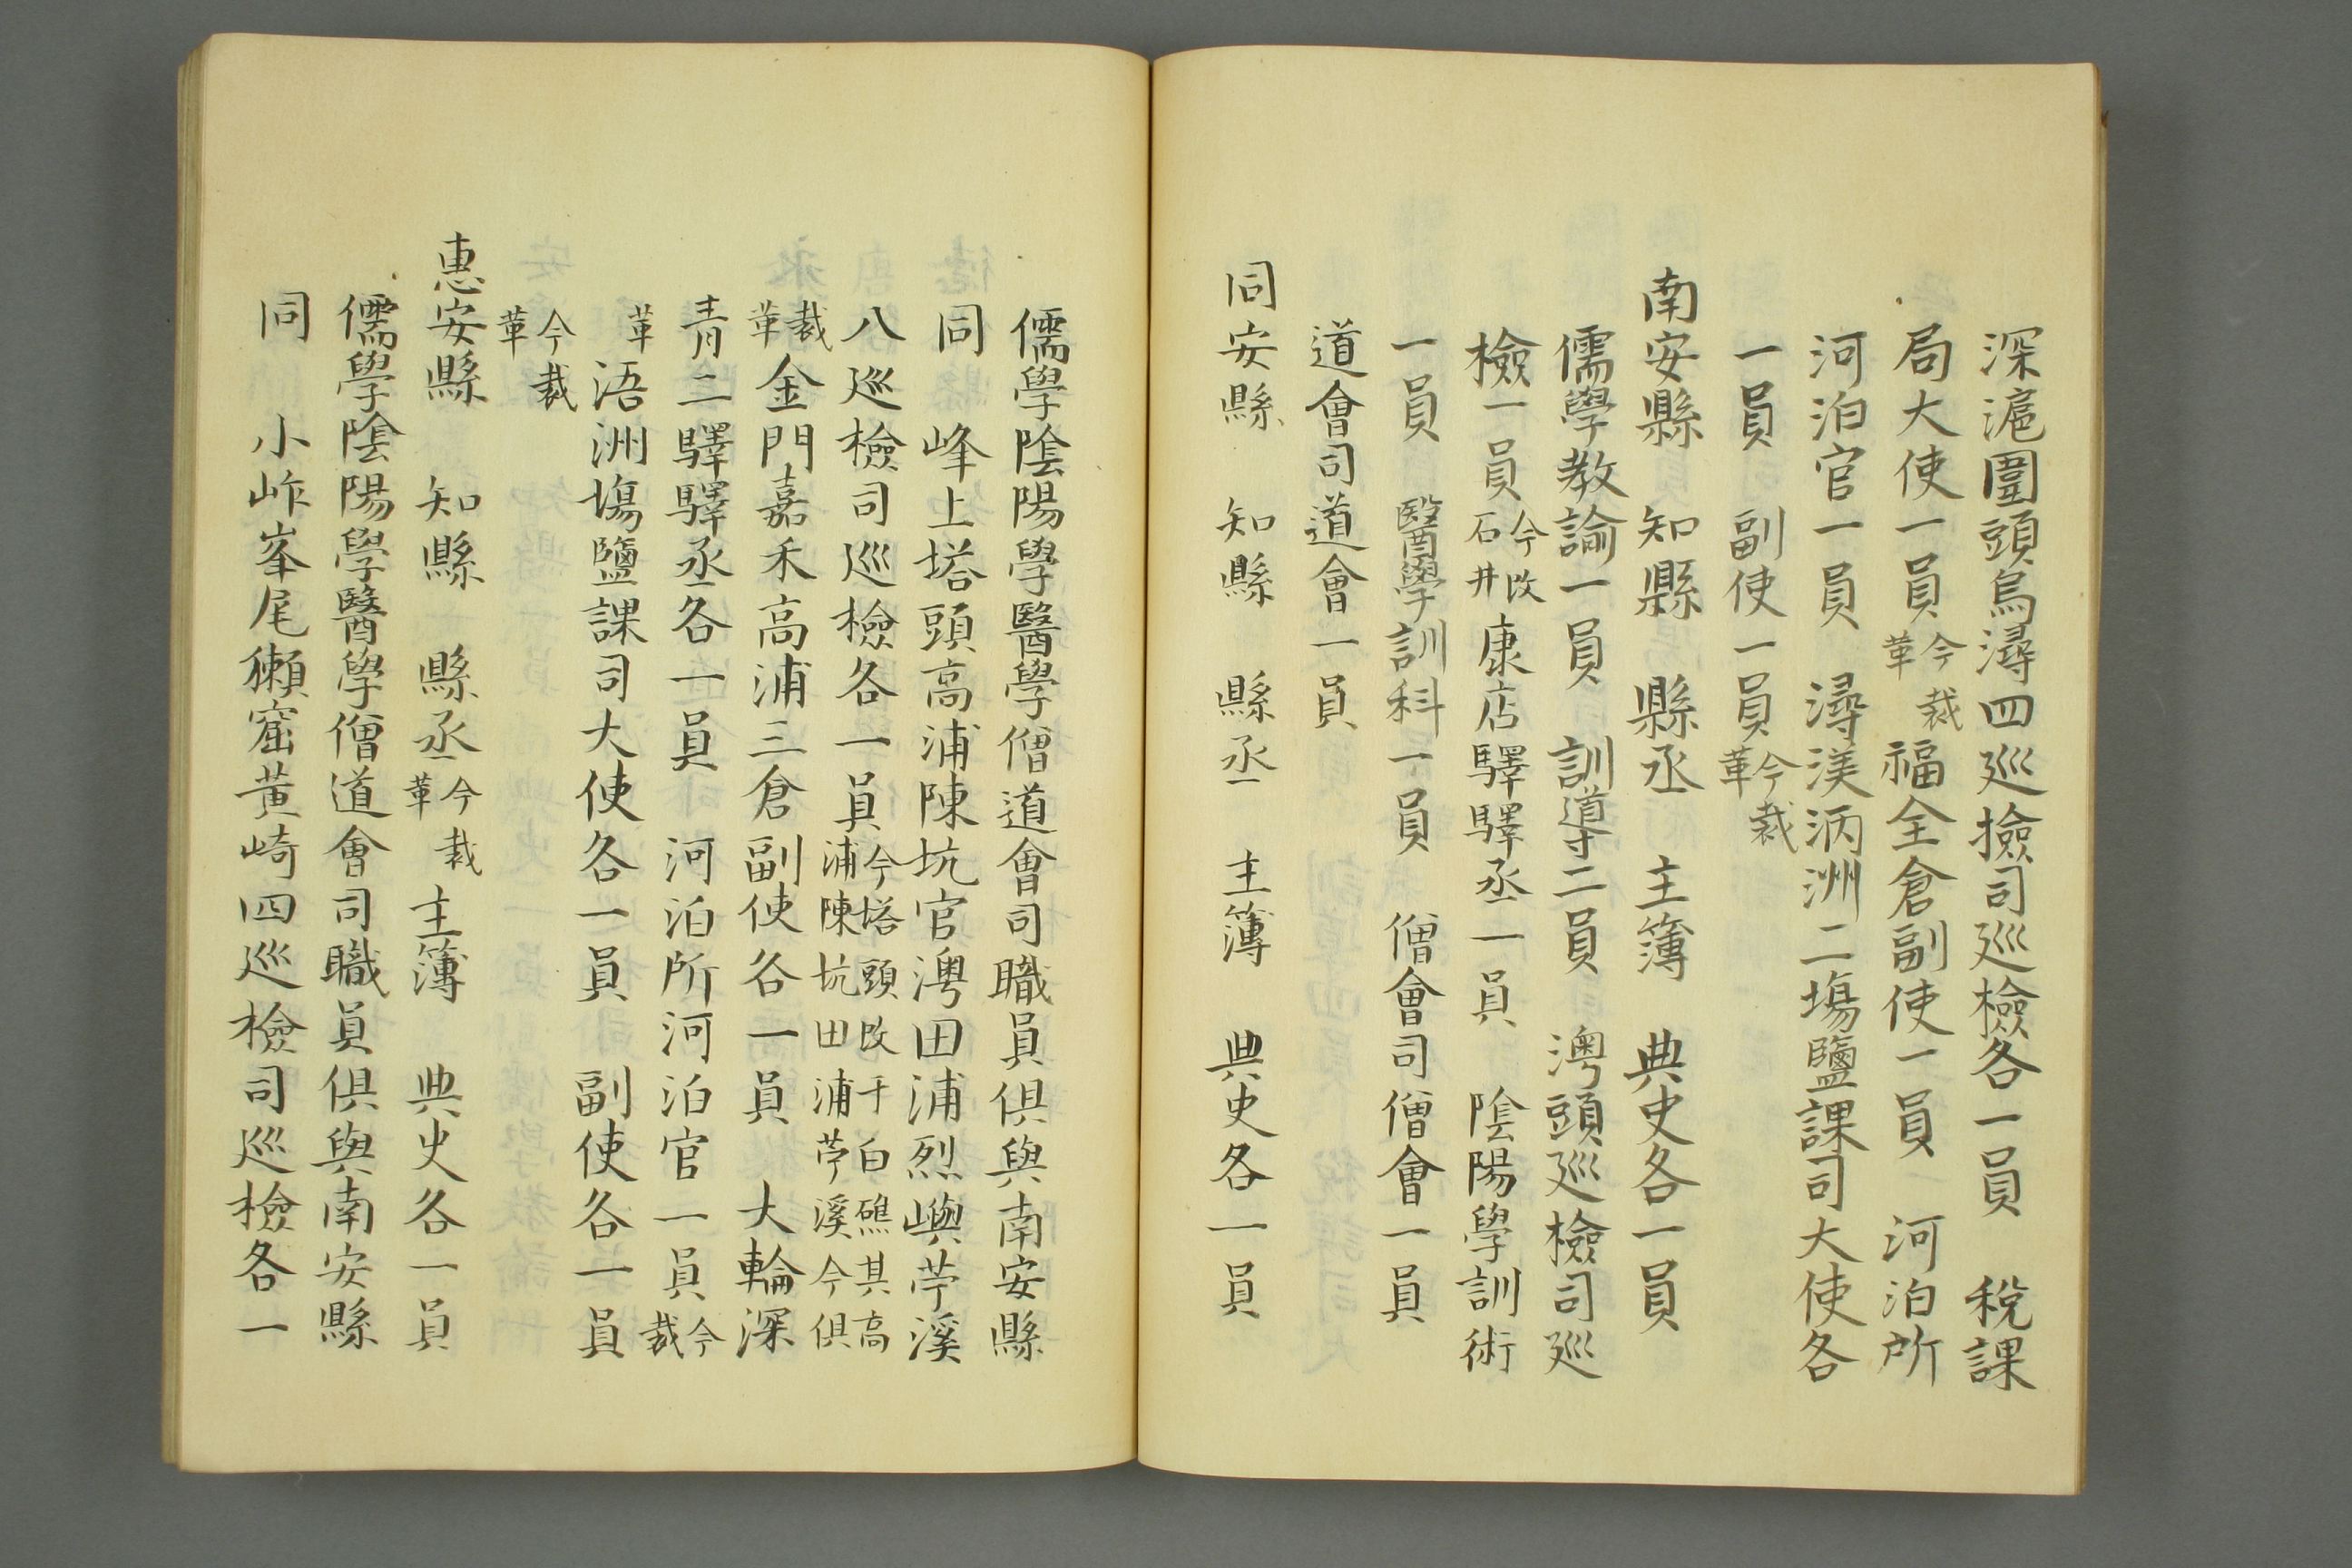 深滬圍頭烏潯四巡撿司巡檢各一員　稅課
局大使一員今裁革福全倉副使一員　河泊所
河泊官一員　潯渼浯洲二塲鹽課司大使各
一員　副使一員今裁革
南安縣　知縣　縣丞　主簿　典史各一員
儒學教諭一員　訓導二員　澳頭巡檢司巡
檢一員今改石井康店驛驛丞一員　陰陽學訓術
一員　醫學訓科一員　僧會司僧會一員
道會司道會一員
同安縣　知縣　縣丞　主簿　典史各一員
儒學陰陽學醫學僧道會司職員俱與南安縣
同　峰上塔頭高浦陳坑官澳田浦烈嶼苧溪
八巡檢司巡檢各一員今塔頭改于白礁其高浦陳坑田浦苧溪今俱
裁革金門嘉禾高浦三倉副使各一員　大輪深
青二驛驛丞各一員　河泊所河泊官一員今裁
革浯洲塲鹽課司大使各一員　副使各一員
今裁革
惠安縣　知縣　縣丞今裁革主簿　典史各一員
儒學陰陽學醫學僧道會司職員俱與南安縣
同　小岞峯尾獺窟黃崎四巡檢司巡檢各一